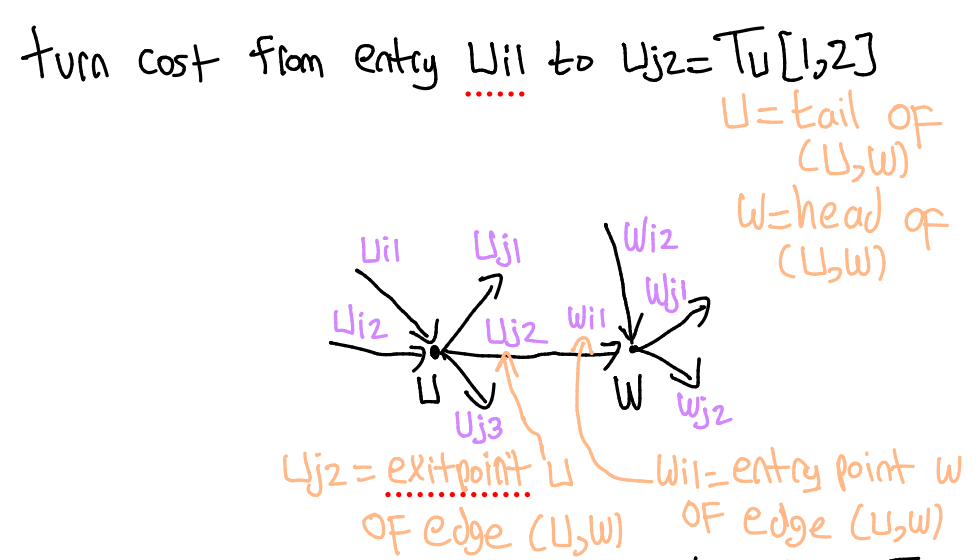 turn cost from entry Ui1 to Uj2=Tu[1,2]
U=tail of
(U,W)
W=head of
(U,W)
Ui1
Uj1
Wi2
Ui2
Uj2
Wi1
Wj1
U
W
Uj3
Wj2
Uj2 = exitpoint U
of edge (U,W)
Wi1=entry point W
of edge (U,W)